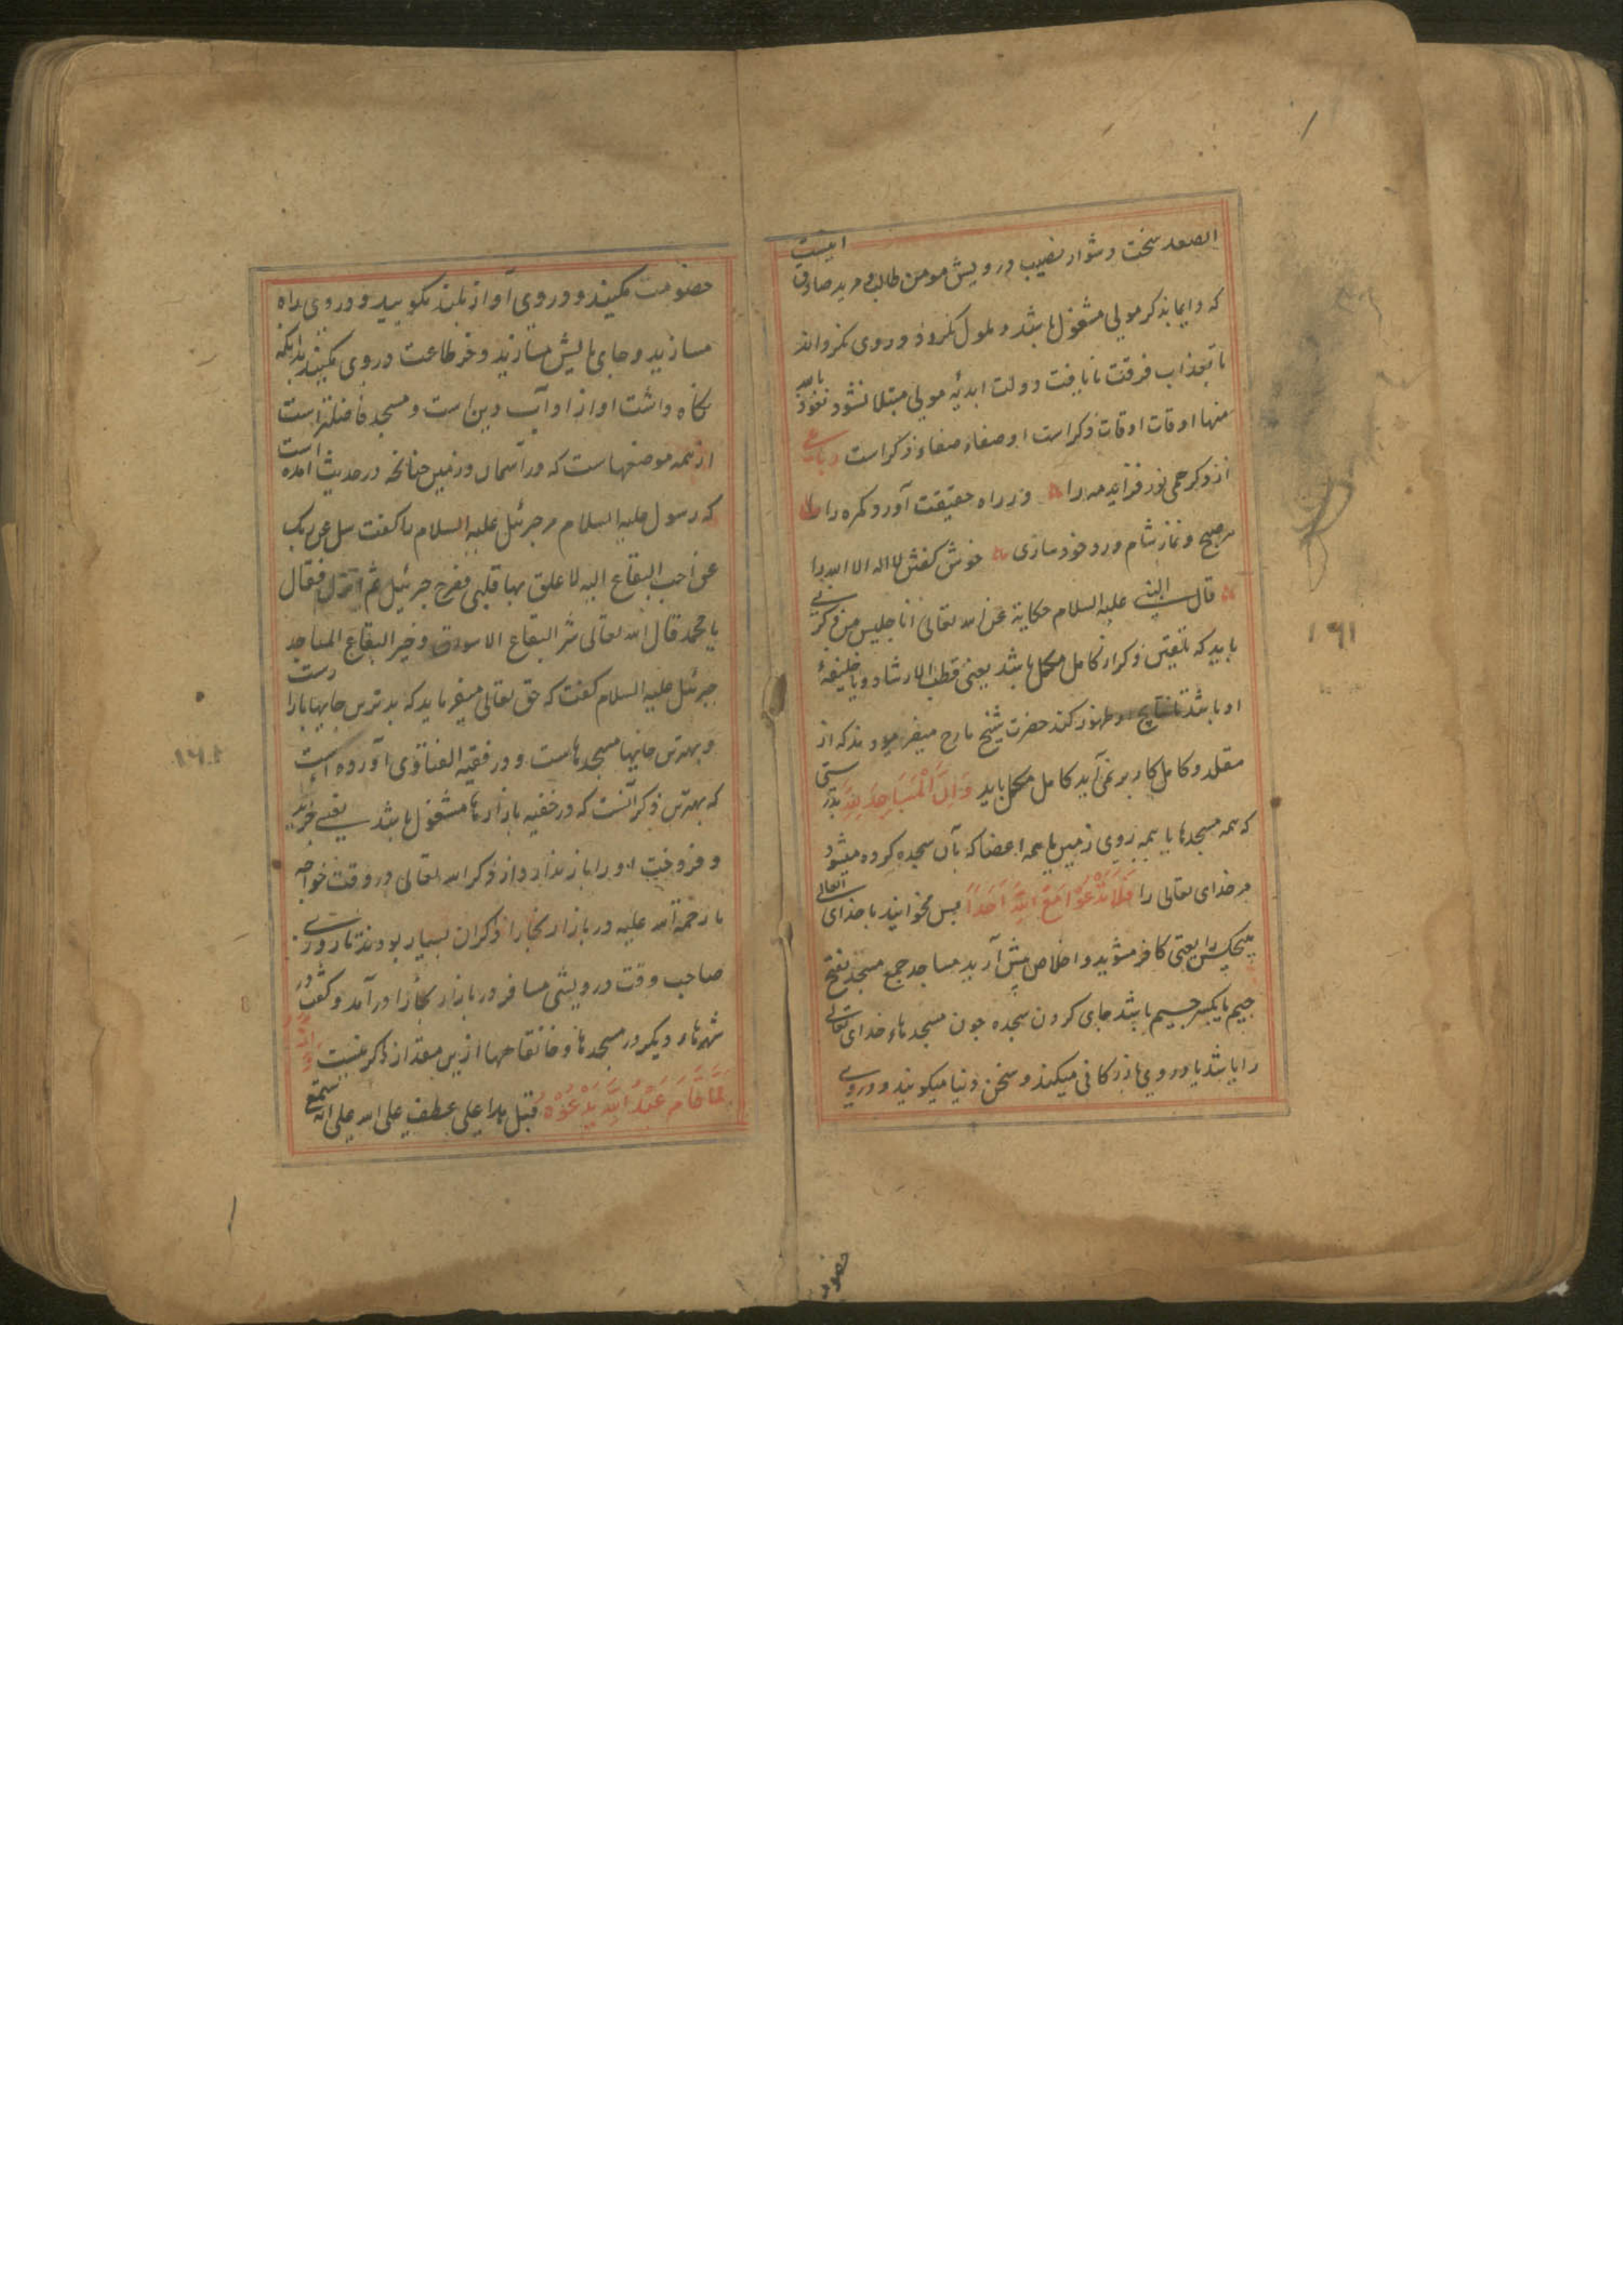 الصعد سخت دشوار نصیب درویش مومن طالب و مرید صادق اینست
که دایما بذکر مولی مشغول باشد و ملول نکردد و روی نکرداند
تا بعذاب فرقت نایافت دولت ابدیه مولی مبتلا نشود نعوذ بالله
منها اوقات اوقات ذکر است و صفاء صفاء ذکر است رباعی
از ذکر همی نور فزاید مه را در راه حقیقت آورد کمره را
هر صبح و نماز شام ورد خود سازی خوش کفتن لا اله الا الله را
قال النبی علیه السلام حکایة عن الله تعالی انا جلیس من ذکرنی
باید که تلقین ذکر از کامل مکمل باشد یعنی قطب الارشاد و یا خلیفهٔ
او باشد تا نتایج او ظهور کند حضرت شیخ ما رح میفرمودند که از
مقلد و کامل کار بر نمی آید کامل مکمل باید وَاَنَّ الْمَسَاجِدَ لِلّٰهِ بدرستی
که همه مسجدها یا همه روی زمین یا همه اعضا که بآن سجده کرده میشود
مر خدای تعالی را فَلَا تَدْعُوْا مَعَ اللّٰهِ اَحَدًا پس مخوانید با خدای تعالی
هیچکس را یعنی کافر مشوید و اخلاص پیش آرید مساجد جمع مسجد بفتح
جیم یا بکسر جیم باشد جای کردن سجده چون مسجدهاء خدای تعالی
را باشد یا در وی میکند و سخن دنیا میکویند و در وی
خصومت مکنید و در وی آواز بلند مکویید و در وی راه
مسازید و جای بالیش مسازید و خر طاعت در وی مکنید بدانکه
نگاه داشت او از آداب دین است و مسجد فاضلتر است
از همه موضعهاست که در آسمان و زمین چنانچه در حدیث آمده است
که رسول علیه السلام مر جبرئیل علیه السلام را کفت سل عن ربک
عن احب البقاع الیه لا علق بها قلبی فعرج جبرئیل ثم انزل فقال
یا محمد قال الله تعالی شر البقاع الاسواق و خیر البقاع المساجد
جبرئیل علیه السلام کفت که حق تعالی میفرماید که بدترین جایها بازارست
و بهترین جایها مسجدهاست و در فقیه الفتاوی آورده است
که بهترین ذکر آنست که در خفیه بازارها مشغول باشد یعنی خرید
و فروخت او را باز ندارد از ذکر الله تعالی در وقت خواجه
ما رحمة الله علیه در بازار بخارا ذکران بسیار بودند تا روزی
صاحب وقت درویشی مسافر در بازار بخارا در آمد و کفت در
شهرهاء دیکر در مسجدها و خانقاهها ازین مقدار ذاکر نیست وَاَنَّهُ
لَمَّا قَامَ عَبْدُ اللّٰهِ يَدْعُوْهُ قیل هذا علی عطف علی انه استمع
حضور
۱۶۱
۱۶۰